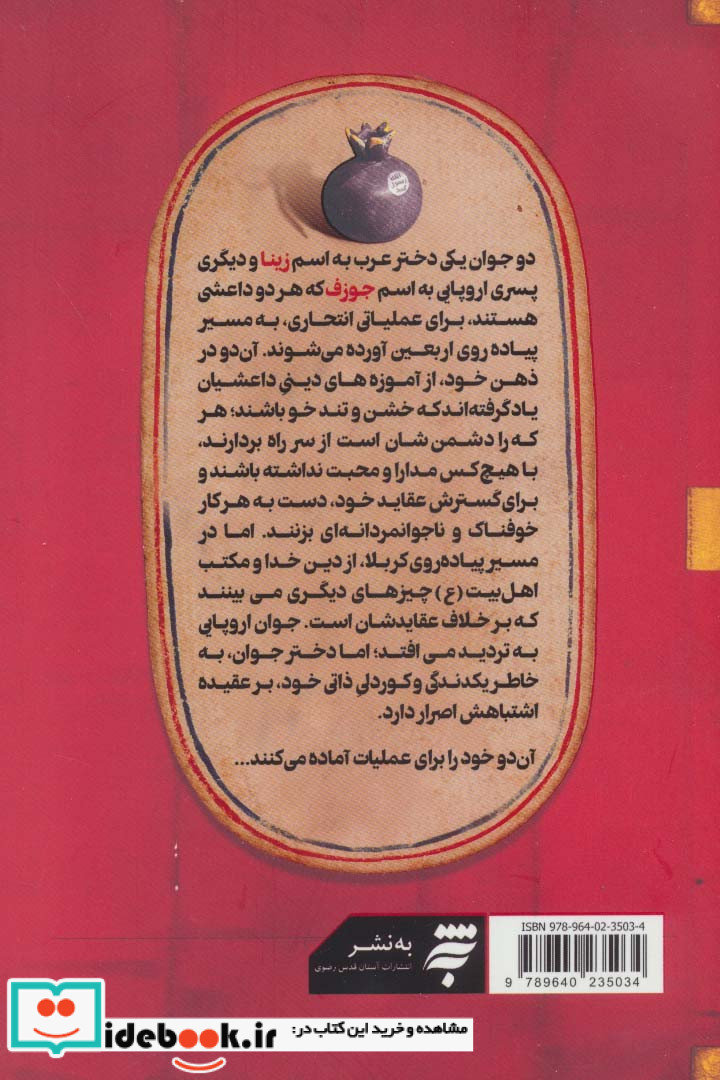 الله
رسول
محمد
دو جوان یکی دختر عرب به اسم زینا و دیگری
پسری اروپایی به اسم جوزف که هر دو داعشی
هستند، برای عملیاتی انتحاری، به مسیر
پیاده روی اربعین آورده می‌شوند. آن‌دو در
ذهن خود، از آموزه های دینیِ داعشیان
یاد گرفته‌اند که خشن و تند خو باشند؛ هر
که را دشمن شان است از سر راه بردارند،
با هیچ کس مدارا و محبت نداشته باشند و
برای گسترش عقاید خود، دست به هر کار
خوفناک و ناجوانمردانه‌ای بزنند. اما در
مسیر پیاده‌روی کربلا، از دین خدا و مکتب
اهل‌بیت (ع) چیزهای دیگری می بینند
که بر خلاف عقایدشان است. جوان اروپایی
به تردید می افتد؛ اما دختر جوان، به
خاطر یکدندگی و کوردلیِ ذاتی خود، بر عقیده
اشتباهش اصرار دارد.
آن‌دو خود را برای عملیات آماده می‌کنند...
به نشر
انتشارات آستان قدس رضوی
ISBN 978-964-02-3503-4
9 789640 235034
idebook.ir
مشاهده و خرید این کتاب در: